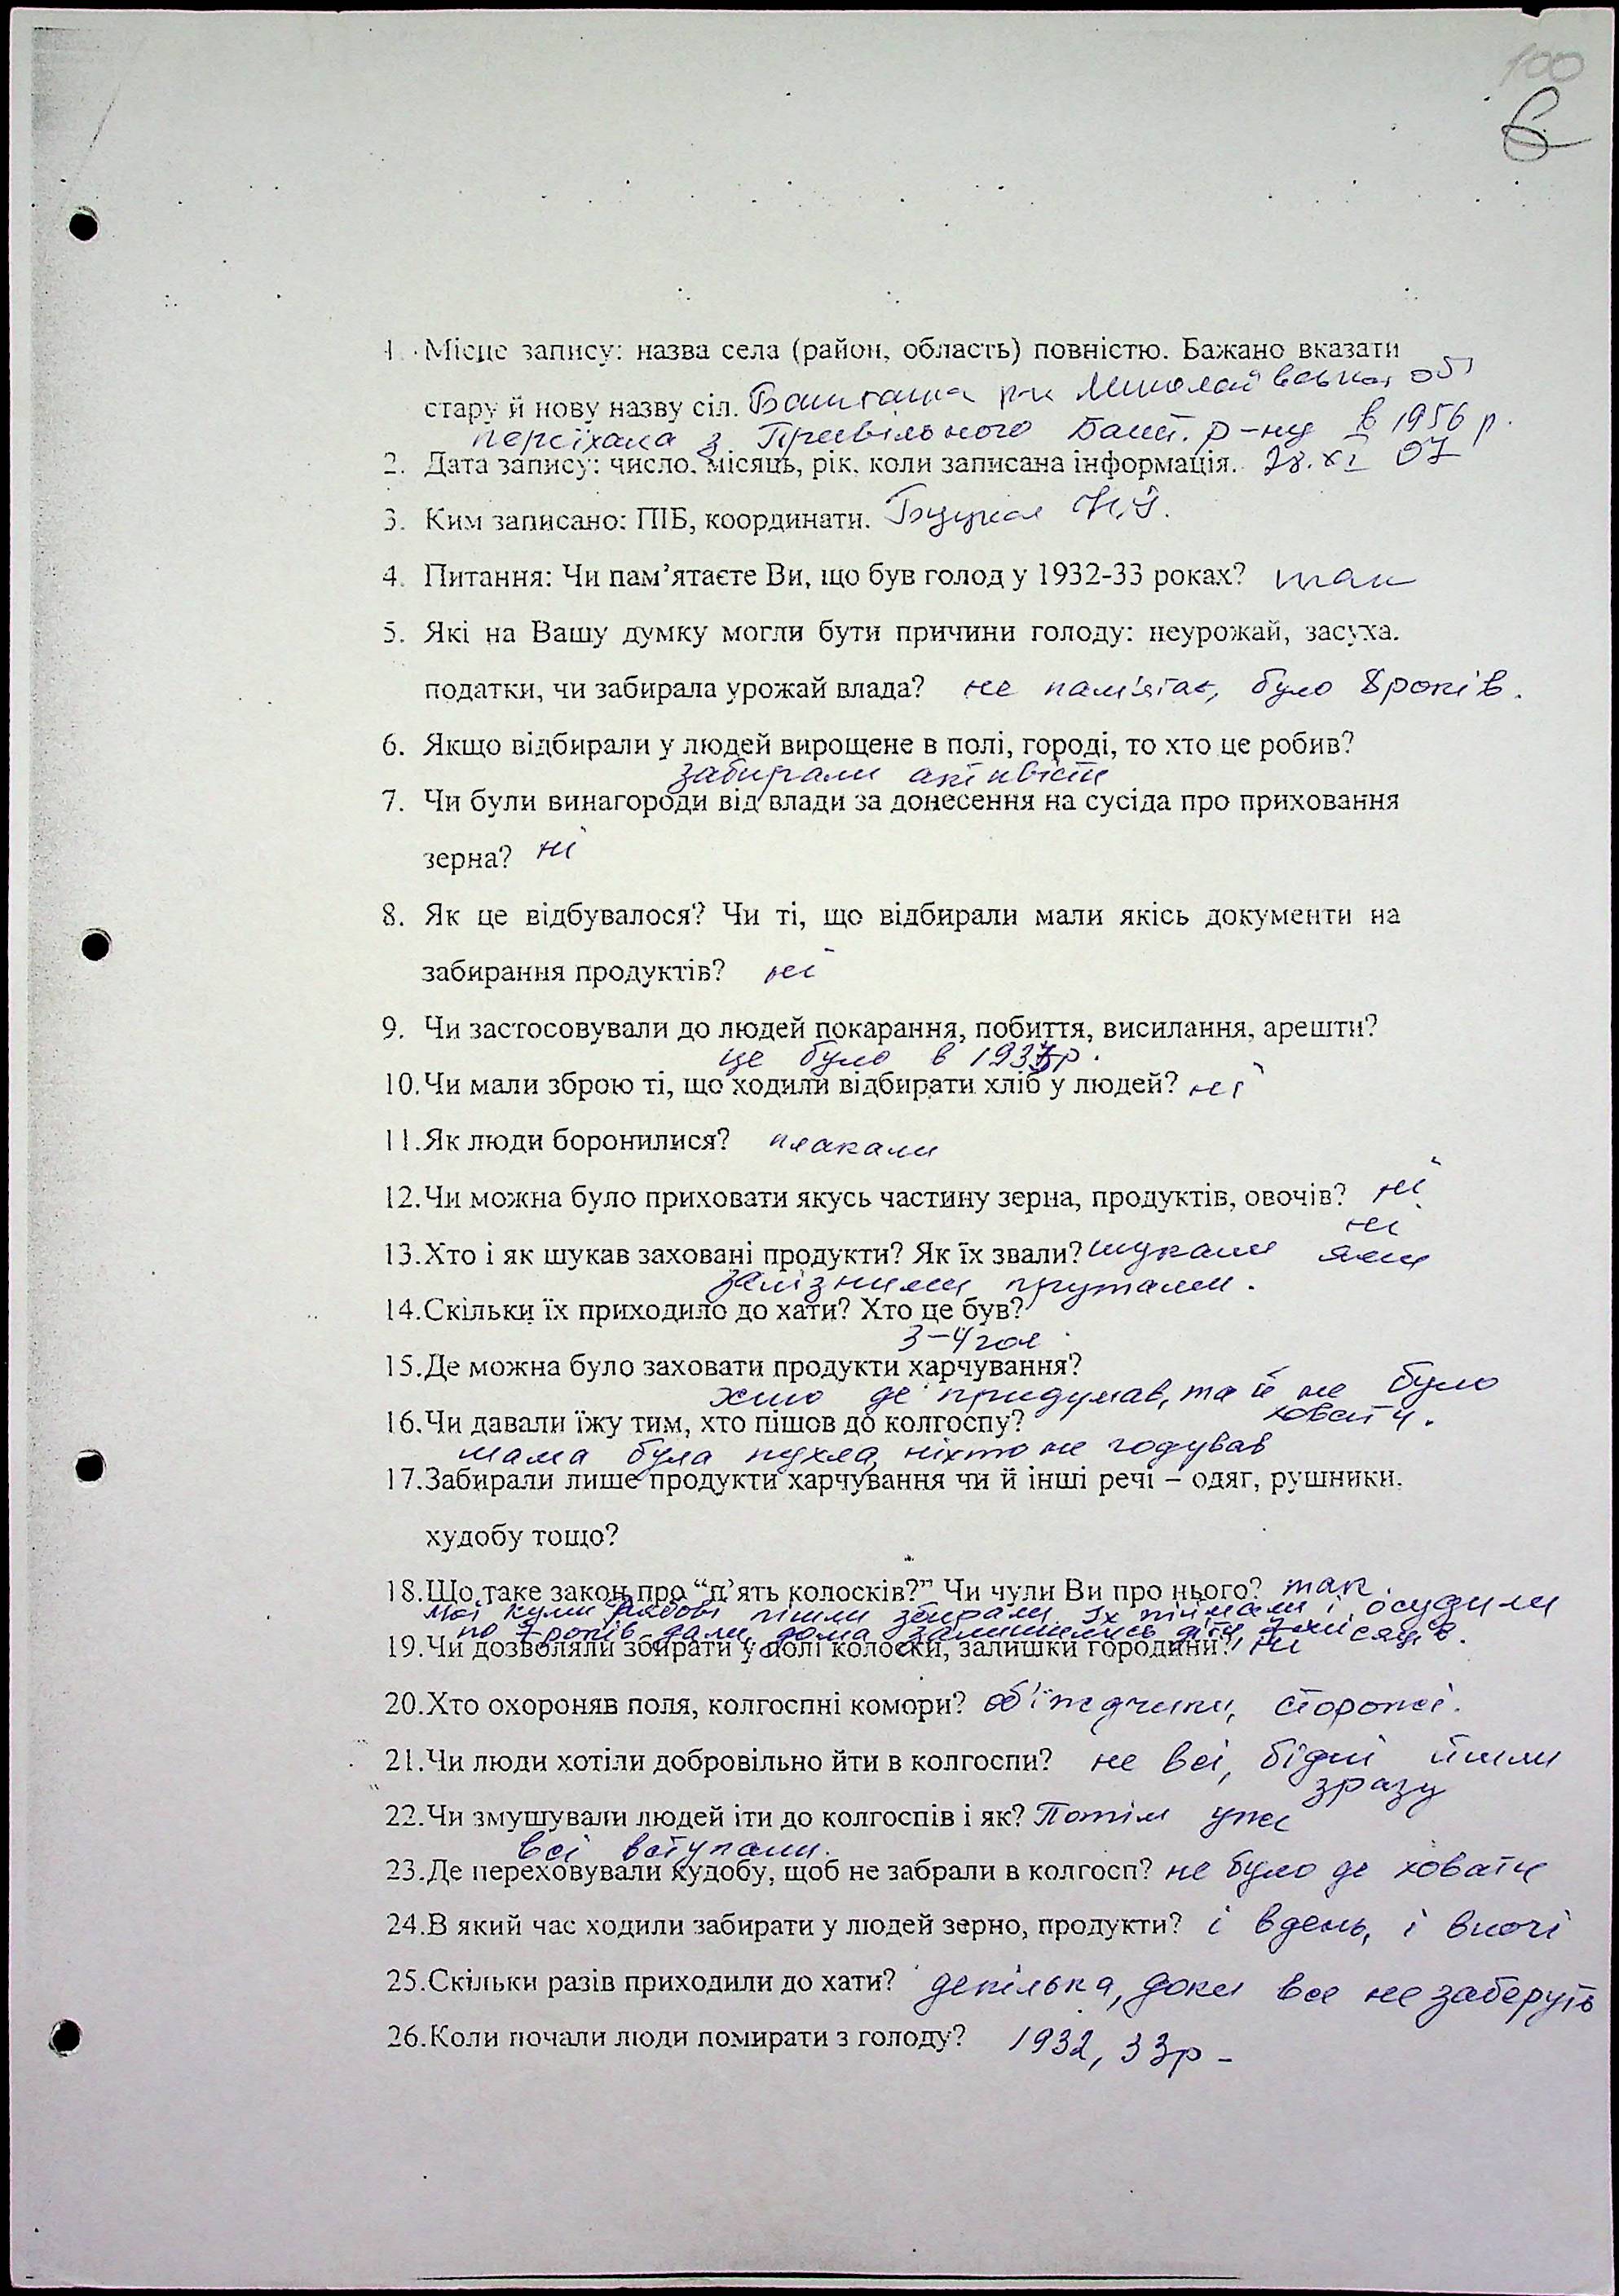 100
6
1. Місце запису: назва села (район, область) повністю. Бажано вказати
стару й нову назву сіл. Баштанка р-н Миколаївська об
переїхала з Привільного Башт. р-ну в 1956 р.
2. Дата запису: число, місяць, рік, коли записана інформація. 28.XI 07
3. Ким записано: ПІБ, координати.
4. Питання: Чи пам’ятаєте Ви, що був голод у 1932-33 роках? так
5. Які на Вашу думку могли бути причини голоду: неурожай, засуха.
податки, чи забирала урожай влада? не пам'ятаю, було 8 років.
6. Якщо відбирали у людей вирощене в полі, городі, то хто це робив?
забирали активісти
7. Чи були винагороди від влади за донесення на сусіда про приховання
зерна? ні
8. Як це відбувалося? Чи ті, що відбирали мали якісь документи на
забирання продуктів? ні
9. Чи застосовували до людей покарання, побиття, висилання, арешти?
це було в 1937р.
10. Чи мали зброю ті, що ходили відбирати хліб у людей? ні
11. Як люди боронилися? плакали
12. Чи можна було приховати якусь частину зерна, продуктів, овочів? ні
ні
13. Хто і як шукав заховані продукти? Як їх звали? шукали
залізними прутами.
14. Скільки їх приходило до хати? Хто це був?
3-4 чол.
15. Де можна було заховати продукти харчування?
хто де придумав, та й не було
ховати.
16. Чи давали їжу тим, хто пішов до колгоспу?
мама була пухла, ніхто не годував
17. Забирали лише продукти харчування чи й інші речі – одяг, рушники.
худобу тощо?
18. Що таке закон про “п’ять колосків?” Чи чули Ви про нього? так.
Мої куми пішли збирали їх піймали і осудили
по 7 років дали, дома залишились діти 7 місяців.
19. Чи дозволяли збирати у полі колоски, залишки городини? ні
20. Хто охороняв поля, колгоспні комори? об'їждчики, сторожі.
21. Чи люди хотіли добровільно йти в колгоспи? не всі, бідні йшли
зразу
22. Чи змушували людей іти до колгоспів і як? Потім уже
всі вступали.
23. Де переховували худобу, щоб не забрали в колгосп? не було де ховати
24. В який час ходили забирати у людей зерно, продукти? і вдень, і вночі
25. Скільки разів приходили до хати? декілька, доки все не заберуть
26. Коли почали люди помирати з голоду? 1932, 33р -